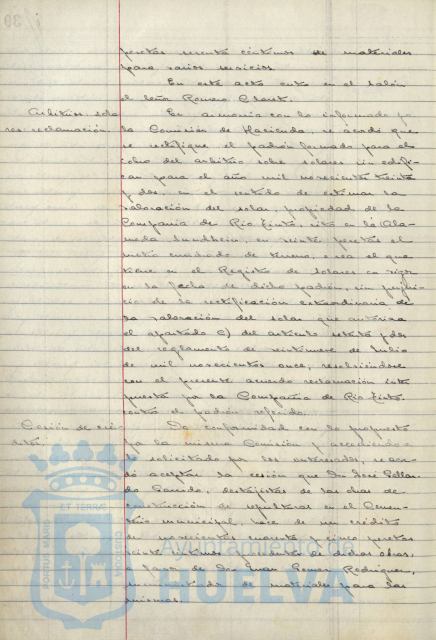 pesetas noventa céntimos de materiales
para varios servicios.
En este acto entra en el salón
el señor Romero Claret.
Arbitrios, sola-
res: reclamación.
En armonía con lo informado por
la Comisión de Hacienda, se acordó que
se rectifique el padrón formado para el
cobro del arbitrio sobre solares sin edifi-
car para el año mil novecientos treinta
y dos, en el sentido de estimar la
valoración del solar, propiedad de la
Compañía de Río Tinto, sito en la Ala-
meda Sundheim, en veinte pesetas el
metro cuadrado de terreno, o sea el que
tiene en el Registro de solares en vigor
en la fecha de dicho padrón, sin perjui-
cio de la rectificación extraordinaria de
la valoración del solar que autoriza
el apartado c) del artículo setenta y dos
del reglamento de veintinueve de Julio
de mil novecientos once; resolviéndose
con el presente acuerdo reclamación inter-
puesta por la Compañía de Río Tinto
contra el padrón referido.
Cesión de cré-
dito.
De conformidad con lo propuesto
por la misma Comisión y accediendo a
lo solicitado por los interesados, se acor-
dó aceptar la cesión que Don José
destajista de las obras de
construcción de sepulturas en el Cemen-
terio municipal, hace de un crédito
de novecientas noventa y cinco pesetas
veinte céntimos de dichas obras,
a favor de Don Juan Gómez Rodríguez,
de materiales para las
mismas.
PORTUS MARIS
ET TERRÆ
CUSTODIA
Ayuntamiento de
HUELVA